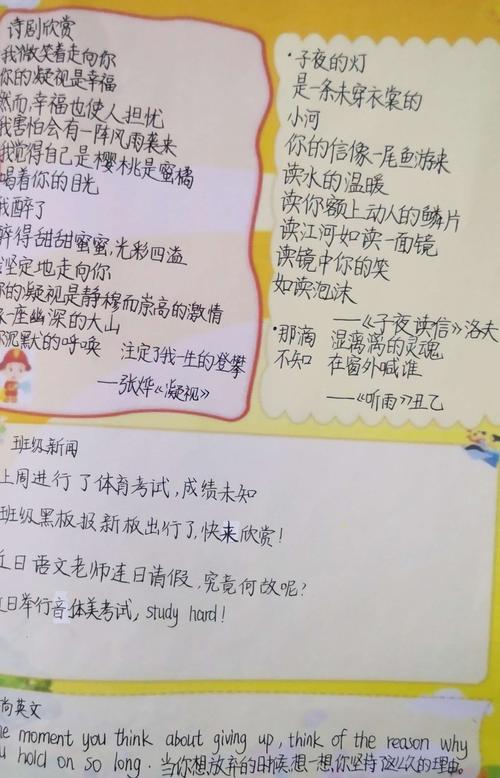 诗剧欣赏
我微笑着走向你
你的凝视是幸福
然而,幸福也使人担忧
我害怕会有一阵风雨袭来
我觉得自己是樱桃是蜜橘
喝着你的目光
我醉了
醉得甜甜蜜蜜,光彩四溢
坚定地走向你
的凝视是静穆而崇高的激情
一座幽深的大山
沉默的呼唤 注定了我一生的登攀
——张烨《凝视》
·子夜的灯
是一条未穿衣裳的
小河
你的信像一尾鱼游来
读水的温暖
读你额上动人的鳞片
读江河如读一面镜
读镜中你的笑
如读泡沫
——《子夜读信》洛夫
·那滴 湿漓漓的灵魂
不知 在窗外喊谁
——《听雨》丑乙
班级新闻
上周进行了体育考试,成绩未知
班级黑板报新板出行了,快来欣赏!
近日语文老师连日请假,究竟何故呢?
日举行音体美考试,study hard!
尚英文
moment you think about giving up, think of the reason why
hold on so long. 当你想放弃的时候,想一想你坚持这么久的理由